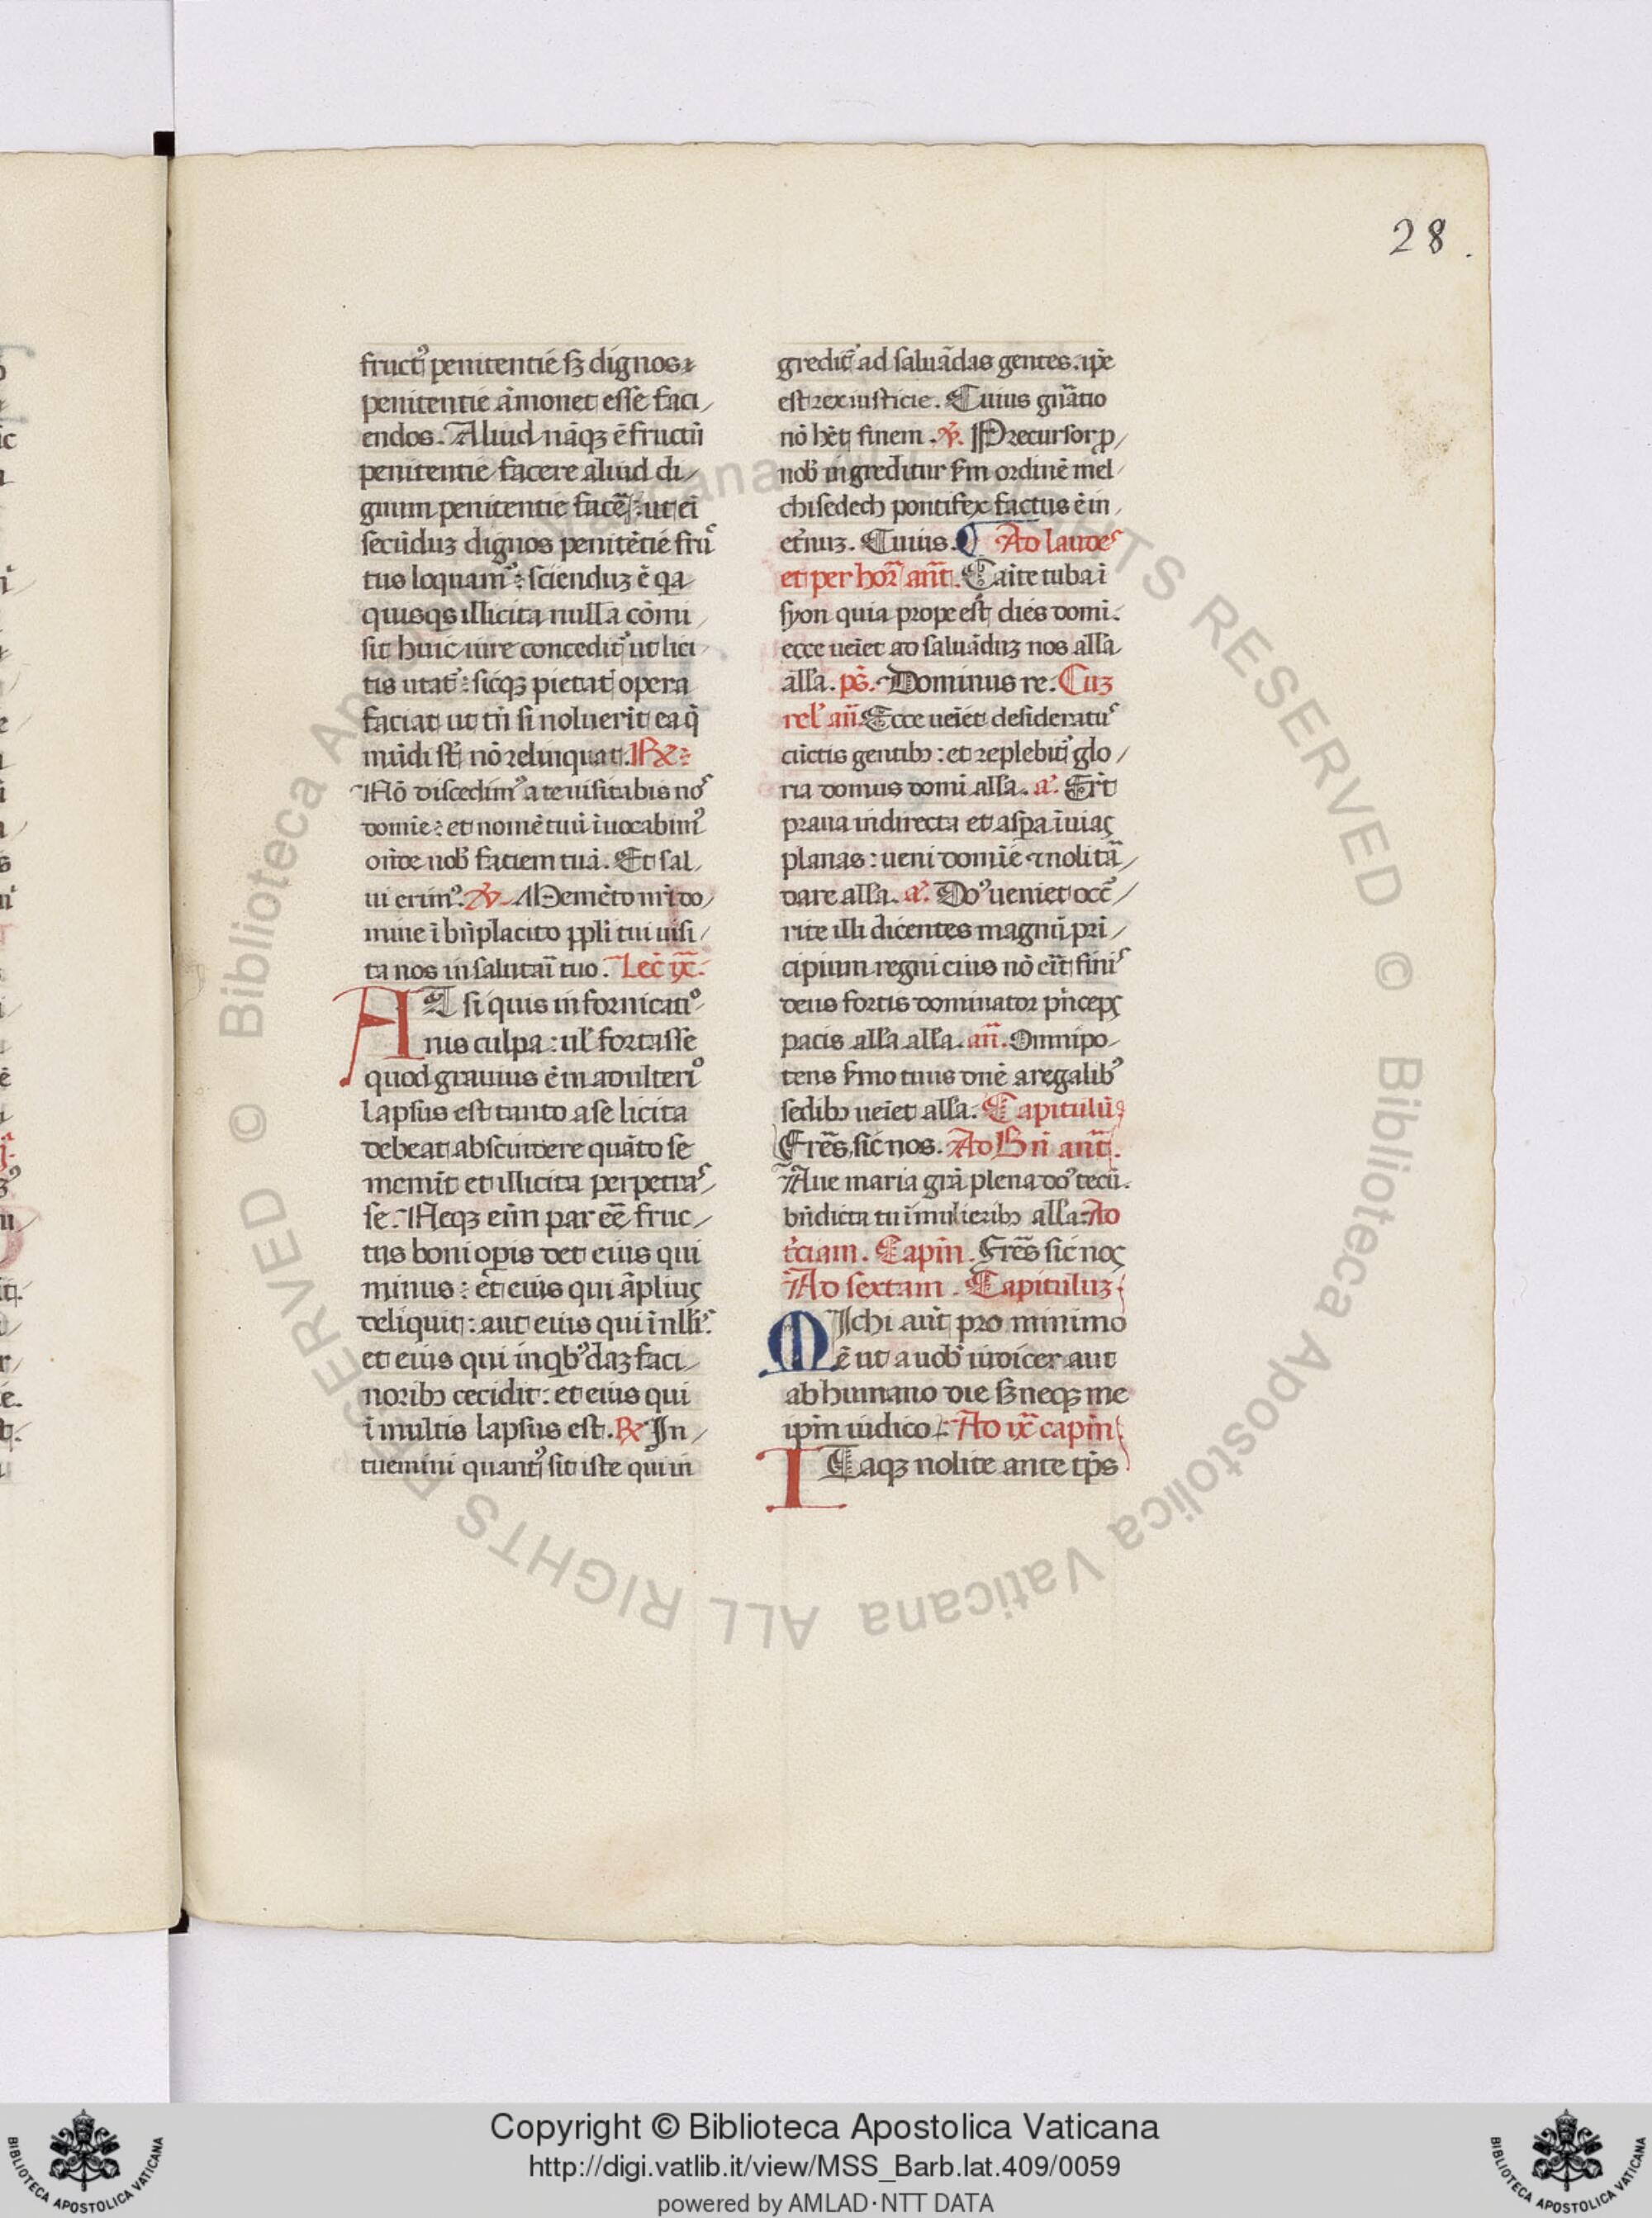 28.
fruct᷒ penitentie sꝫ dignos ⁊
penitentie āmonet esse faci/
endos. Aliud nāqꝫ ē fructū
penitentie facere aliud di/
gnum penitentie facē: ut eī
secūduꝫ dignos penitētie fruc
tus loquam᷒: scienduꝫ ē qa
quisqs illicita nulla cōmi/
sit huic iure concedit᷒ ut lici/
tis utat᷒: sicqꝫ pietat opera
faciat ut tn̄ si noluerit ea q̄
mūdi st̄ nō relinquat. ℟:
Nō discedim᷒ a te uisitabis nos
domīe: et nomē tuū īuocabim᷒
onde nob̄ faciem tuā. Et sal/
ui erim᷒. ℣. Memēto nr̄i do/
mine ī bn̄placito ppli tui uisi/
ta nos in salutaī tuo. Lec̄ ix.
AT si quis in fornicatio/
nis culpa: ul̄ fortasse
quod grauius ē in adulterio
lapsus est tanto a se licita
debeat abscindere quāto se
memīt et illicita perpetras/
se. Neqꝫ eīm par eē fruc/
tus boni op̄is det eius qui
minus: et eius qui āplius
deliquit: aut eius qui ī nll̄is
et eius qui in qb᷒daꝫ faci/
norib᷒ cecidit: et eius qui
ī multis lapsus est. ℟ In/
tuemini quant᷒ sit iste qui in
gredit᷒ ad saluādas gentes. ipē
est rex iusticie. Cuius gn̄atio
nō het finem. ℣. Precursor p/
nob̄ ingreditur sm ordinē mel/
chisedech pontifex factus ē in/
et̄nuꝫ. Cuius. Ad laudes
et per hor̄ ant̄. Canite tuba ī
syon quia prope est dies domī.
ecce ueīet ad saluāduꝫ nos all̄a
all̄a. ps̄. Dominus re. Cuꝫ
rel᷒ an̄. Ecce ueīet desideratus
cūctis gentib᷒: et replebit᷒ glo/
ria domus domī all̄a. a᷒. Er̄t
praua in directa et asp̄a ī uias
planas: ueni domīe ⁊ noli tā/
dare all̄a. a᷒. Do᷒ ueniet occ̄/
rite illi dicentes magnū prī/
cipium regni eius nō eīt finis
deus fortis dominator pn̄ceps
pacis all̄a all̄a. an̄. Omnipo/
tens s̄mo tuus dn̄e a regalib᷒
sedib᷒ ueīet all̄a. Capitulū
Frēs, sic nos. Ad Bn̄ ant̄.
Aue maria grā plena do᷒ tecū.
bn̄dicta tu ī mulierib᷒ all̄a. Ad
t̄ciam. Capīn. Frēs sic nos
Ad sextam. Capituluꝫ
MIchi aūt pro minimo
ē ut a uob̄ iudicer aut
ab humano die sꝫ neqꝫ me
ipm̄ iudico. Ad ix capīn
ITaqꝫ nolite ante tp̄s
© Biblioteca Apostolica Vaticana ALL RIGHTS RESERVED
© Biblioteca Apostolica Vaticana ALL RIGHTS RESERVED
BIBLIOTECA APOSTOLICA VATICANA
Copyright © Biblioteca Apostolica Vaticana
http://digi.vatlib.it/view/MSS_Barb.lat.409/0059
powered by AMLAD·NTT DATA
BIBLIOTECA APOSTOLICA VATICANA